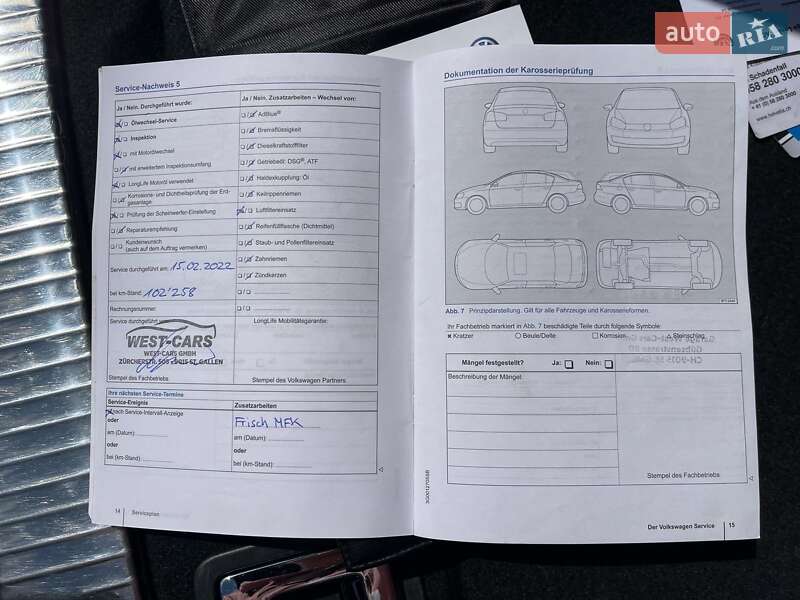 auto RIA.com
Schadenfall
058 280 3000
Aus dem Ausland
www.helvetia.ch
Service-Nachweis 5
Ja / Nein. Durchgeführt wurde:
Ölwechsel-Service
Inspektion
mit Motorölwechsel
mit erweitertem Inspektionsumfang
LongLife Motoröl verwendet
Korrosions- und Dichtheitsprüfung der Erd-
gasanlage
Prüfung der Scheinwerfer-Einstellung
Reparaturempfehlung:
Kundenwunsch
(auch auf dem Auftrag vermerken)
Service durchgeführt am: 15.02.2022
bei km-Stand: 102'258
Rechnungsnummer:
Service durchgeführt
WEST-CARS
WEST-CARS GMBH
ZÜRCHERSTR. 508 9015 ST. GALLEN
Stempel des Fachbetriebs:
Ja / Nein. Zusatzarbeiten – Wechsel von:
AdBlue®
Bremsflüssigkeit
Dieselkraftstofffilter
Getriebeöl: DSG®, ATF
Haldexkupplung: Öl
Keilrippenriemen
Luftfiltereinsatz
Reifenfüllflasche (Dichtmittel)
Staub- und Pollenfiltereinsatz
Zahnriemen
Zündkerzen
LongLife Mobilitätsgarantie:
Stempel des Volkswagen Partners:
Ihre nächsten Service-Termine
Service-Ereignis
nach Service-Intervall-Anzeige
oder
am (Datum):
oder
bei (km-Stand):
Zusatzarbeiten
Frisch MFK
am (Datum):
oder
bei (km-Stand):
14 Serviceplan
Dokumentation der Karosserieprüfung
Abb. 7 Prinzipdarstellung. Gilt für alle Fahrzeuge und Karosserieformen.
Ihr Fachbetrieb markiert in Abb. 7 beschädigte Teile durch folgende Symbole:
x Kratzer
Beule/Delle
Korrosion
Steinschlag
Mängel festgestellt? Ja: Nein:
Beschreibung der Mängel:
Stempel des Fachbetriebs:
3G0012705SB
Der Volkswagen Service 15